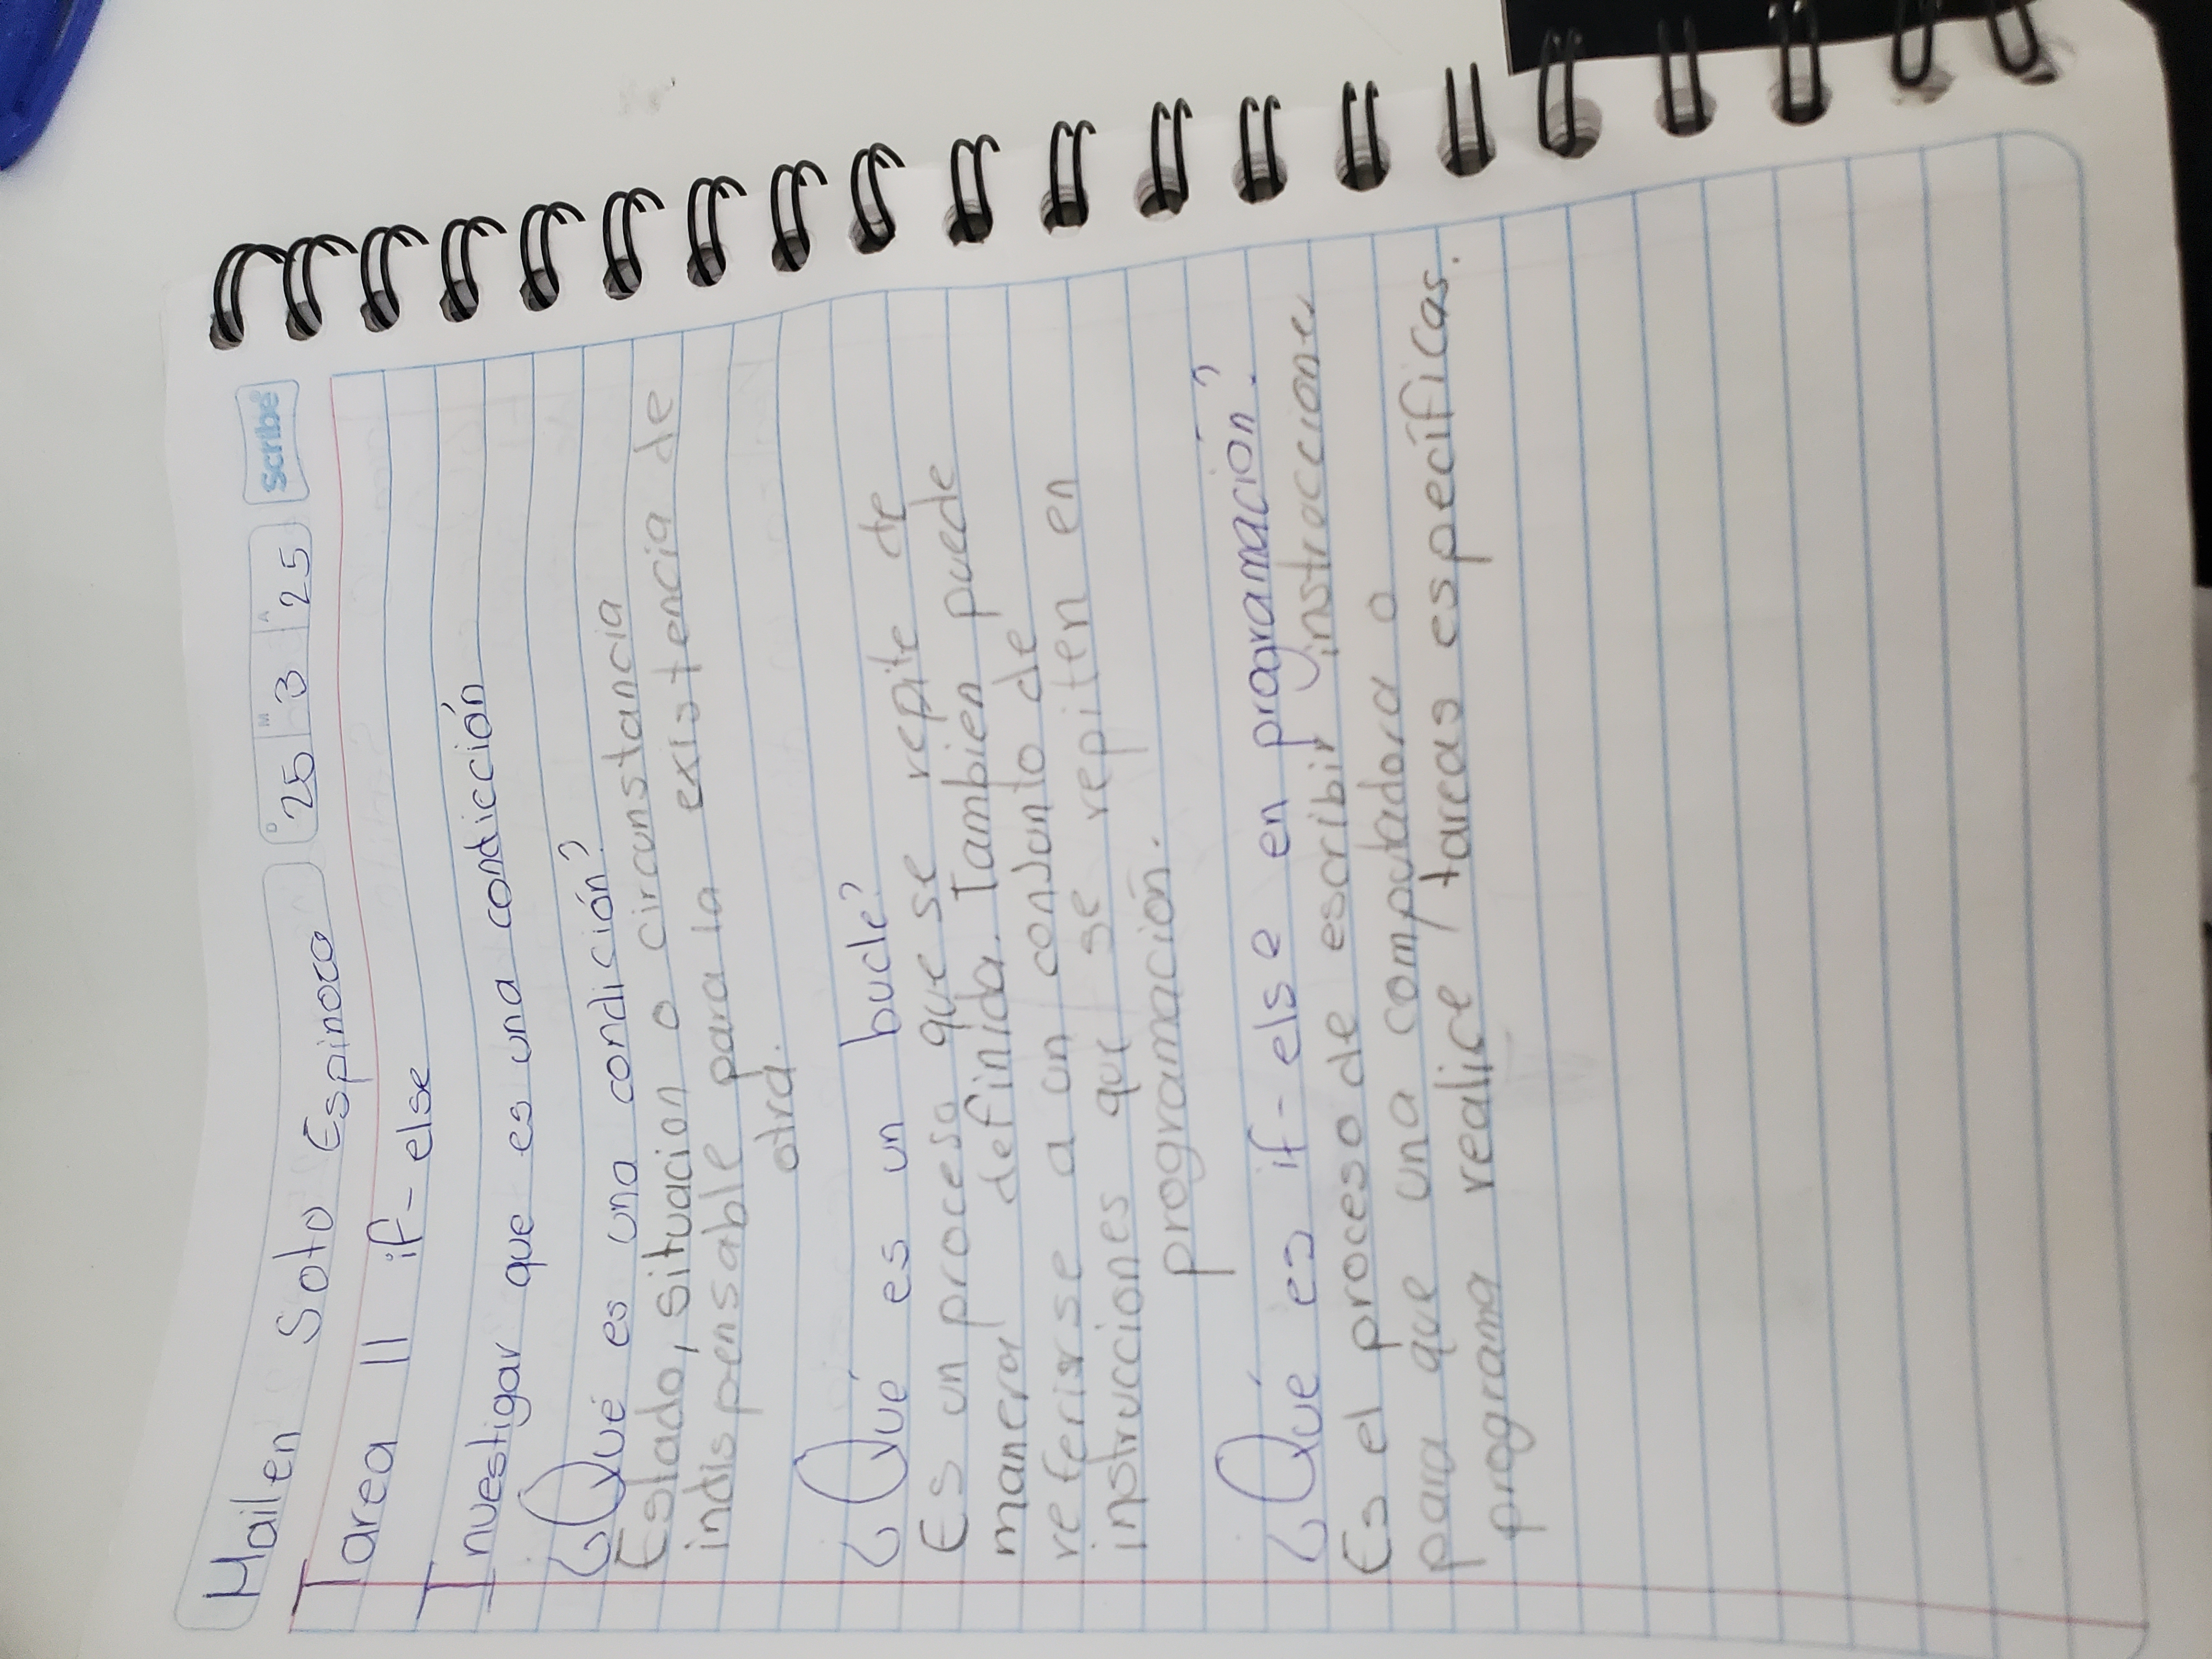 Mailen Soto Espinoza D 25 M 3 A 25 Scribe
Tarea 11 if-else
Investigar que es una condicción
¿Qué es una condición?
Estado, situacion o circunstancia
indispensable para la existencia de
otra.
¿Qué es un bucle?
Es un proceso que se repite de
manera definida. Tambien puede
referirse a un conjunto de
instrucciones que se repiten en
programación.
¿Qué es if-else en programación?
Es el proceso de escribir instruccione
para que una computadora o
programa realice tareas específicas.